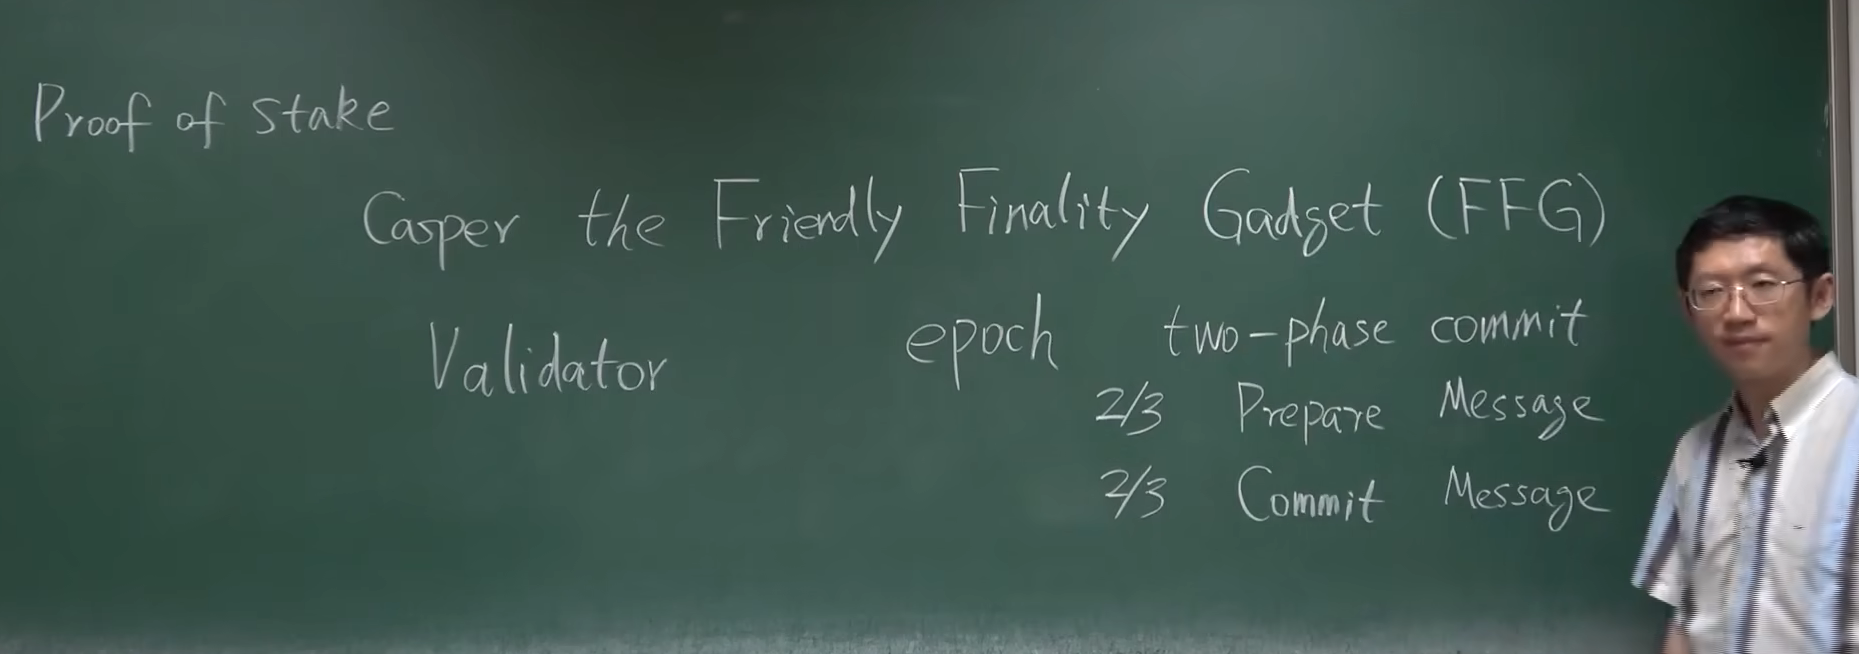 Proof of stake
Casper the Friendly Finality Gadget (FFG)
Validator epoch two-phase commit
2/3 Prepare Message
2/3 Commit Message